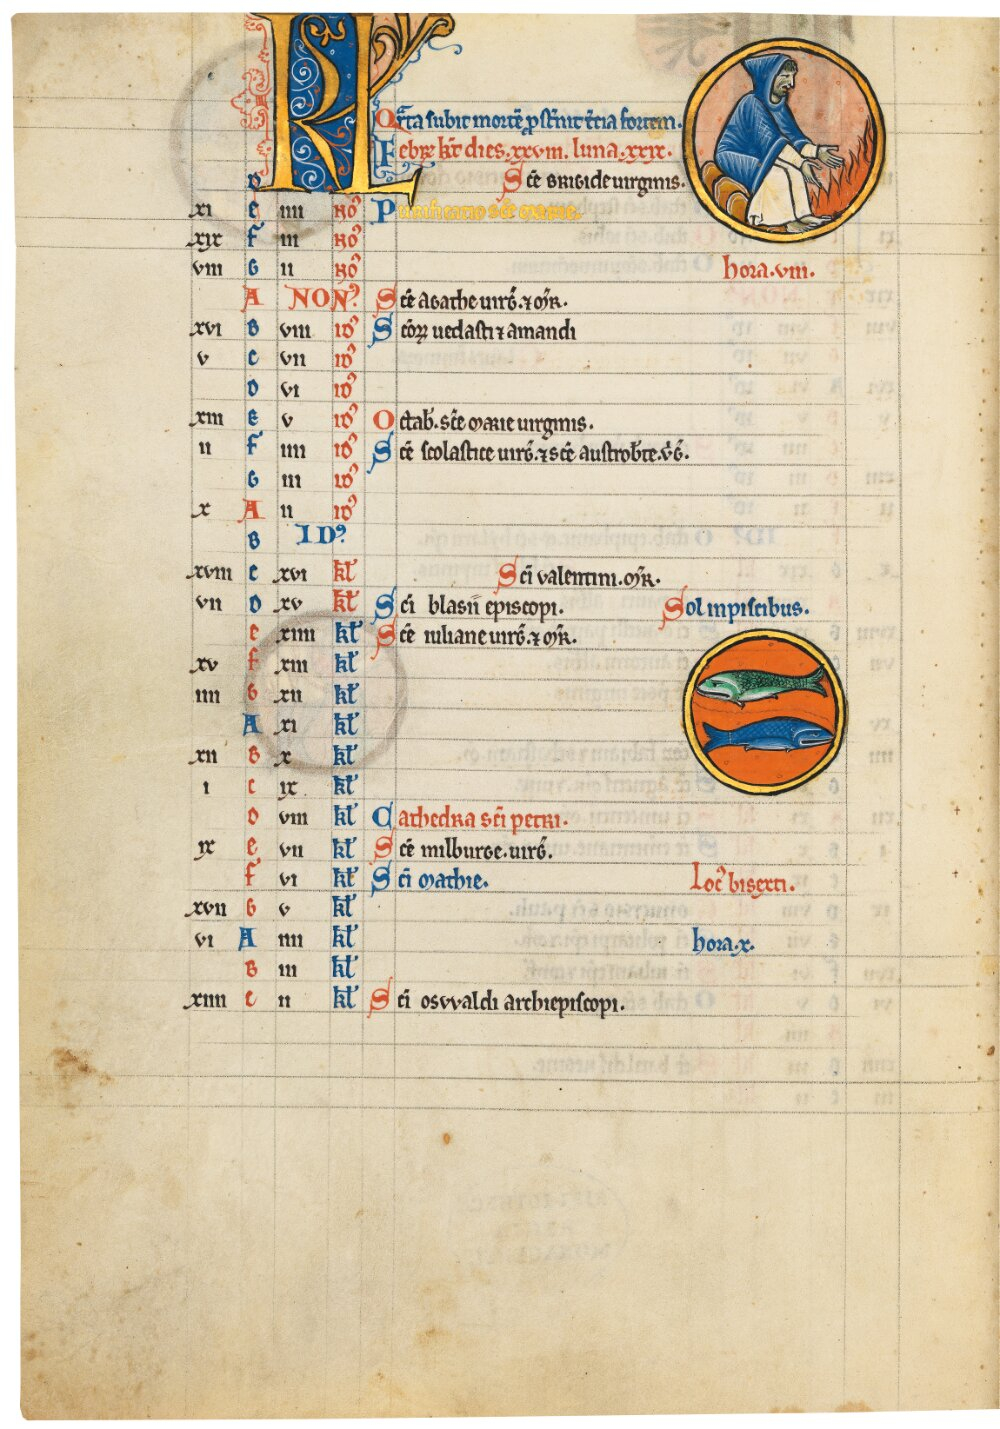 KL
Qrta subit mortē ꝓstnit t̄cia fortem.
Febr̄ kt̄ dies. xxviii. luna. xxix.
D Sc̄e BRIGIDE uirginis.
xi E iiii NO᷒ Purificatio sc̄e marie.
xix F iii NO᷒
viii G ii NO᷒ hora. viii.
A NON᷒ Sc̄e agathe uirḡ. ⁊ m̄R.
xvi B viii ID᷒ Sc̄oꝝ uedasti ⁊ amandi
v C vii ID᷒
D vi ID᷒
xiii E v ID᷒ Octab̄. sc̄e marie uirginis.
ii F iiii ID᷒ Sc̄e scolastice uirḡ. ⁊ sc̄e austrob̄te. v̄ḡ.
G iii ID᷒
x A ii ID᷒
B ID᷒
xviii C xvi kł Sc̄i valentini. m̄R.
vii D xv kł Sc̄i blasii episcopi. Sol in piscibus.
E xiiii kł Sc̄e iuliane uirḡ. ⁊ m̄R.
xv F xiii kł
iiii G xii kł
A xi kł
xii B x kł
i C ix kł
D viii kł Cathedra sc̄i petri.
ix E vii kł Sc̄e milburge. uirḡ.
F vi kł Sc̄i mathie. Loc᷒ bisexti.
xvii G v kł
vi A iiii kł hora. x.
B iii kł
xiiii C ii kł Sc̄i osvvaldi archiepiscopi.